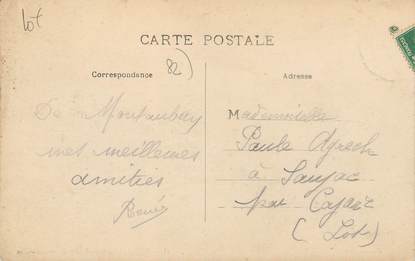 Lot
CARTE POSTALE
82)
Correspondance
Adresse
De Montauban
mes meilleures
amitiés
Renée
Mademoiselle
Paule
à Saujac
par Cajarc
(Lot)